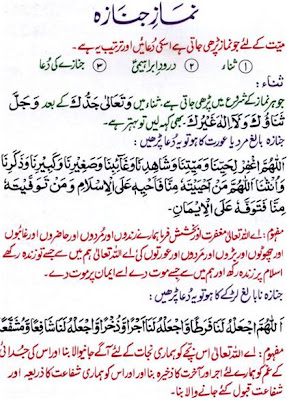 نمازِ جنازہ
میّت کے لئے جو نماز پڑھی جاتی ہے اسکی دُعائیں اور ترتیب یہ ہے۔
① ثناء ② درودِ ابراہیمی ③ جنازے کی دُعا
ثناء:
جو ہر نماز کے شروع میں پڑھی جاتی ہے۔ ثناء میں وَتَعَالٰی جَدُّكَ کے بعد وَجَلَّ
ثَنَاؤُكَ وَلَآ اِلٰهَ غَيْرُكَ۔ بھی کہہ لیں تو بہتر ہے۔
جنازہ بالغ مرد یا عورت کا ہو تو یہ دُعا پڑھیں:
اَللّٰهُمَّ اغْفِرْ لِحَيِّنَا وَمَيِّتِنَا وَشَاهِدِنَا وَغَآئِبِنَا وَصَغِيْرِنَا وَكَبِيْرِنَا وَذَكَرِنَا
وَاُنْثٰنَا اَللّٰهُمَّ مَنْ اَحْيَيْتَهٗ مِنَّا فَاَحْيِهٖ عَلَی الْاِسْلَامِ وَمَنْ تَوَفَّيْتَهٗ
مِنَّا فَتَوَفَّهٗ عَلَی الْاِيْمَانِ۔
مفہوم: اے اللہ تعالیٰ مغفرت تو بخشش فرما ہمارے زندوں اور مُردوں اور حاضروں اور غائبوں
اور چھوٹوں اور بڑوں اور مَردوں اور عورتوں کی، اے اللہ تعالیٰ ہم میں سے جسے تو زندہ رکھے
اسلام پر زندہ رکھ اور ہم میں سے جسے موت دے اسے ایمان پر موت دے۔
جنازہ نابالغ لڑکے کا ہو تو یہ دُعا پڑھیں:
اَللّٰهُمَّ اجْعَلْهُ لَنَا فَرَطًا وَّاجْعَلْهُ لَنَا اَجْرًا وَّذُخْرًا وَّاجْعَلْهُ لَنَا شَافِعًا وَّمُشَفَّعًا
مفہوم: اے اللہ تعالیٰ اس بچّے کو ہماری نجات کے لئے آگے جانیوالا بنا اور اس کی جُدائی
کے غم کو ہمارے لئے اجر اور آخرت کا ذخیرہ بنا اور اس کو ہماری شفاعت کا ذریعہ اور
شفاعت قبول کئے جانے والا بنا۔